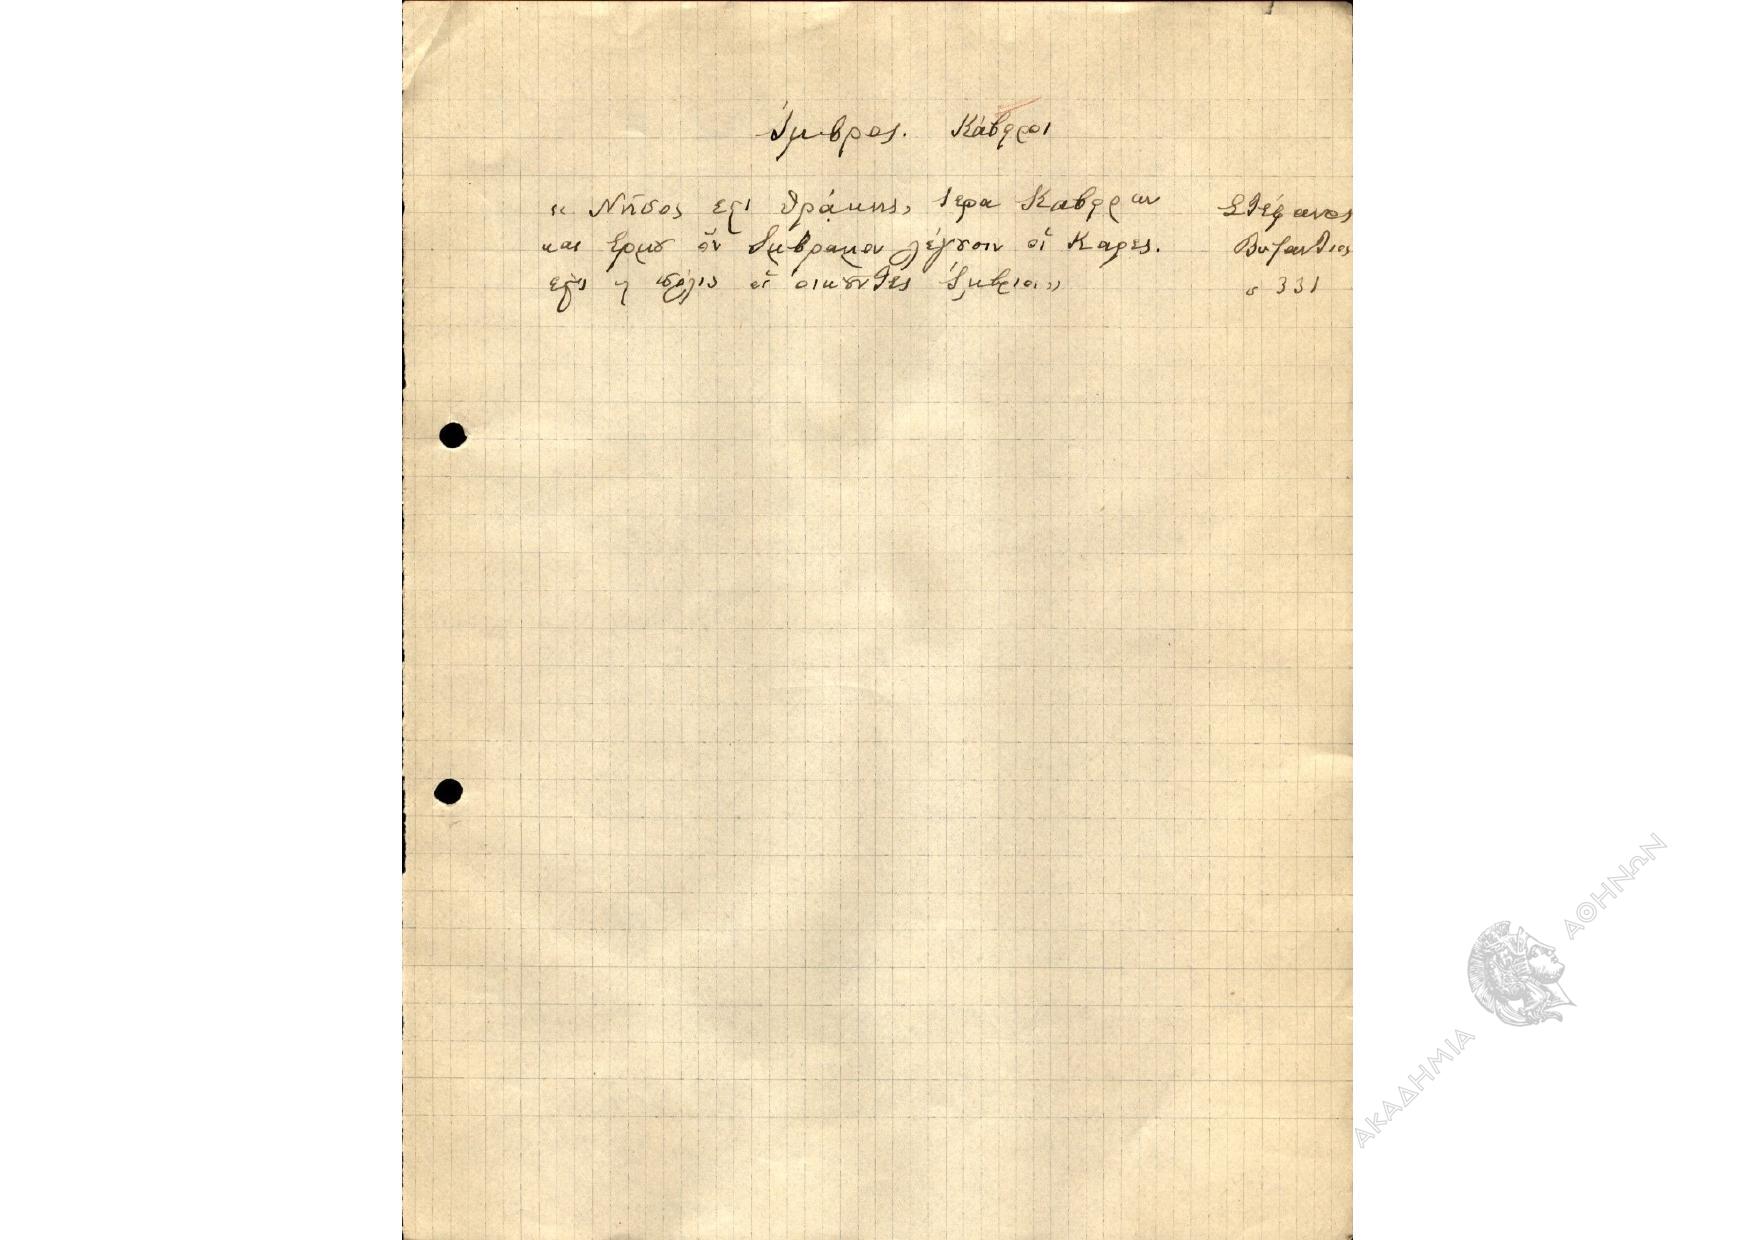 Ίμβρος. Κάβειροι
« Νῆσος εστι Θρᾴκης, ιερα Καβείρων
και Ερμȣ ὅν Ίμβραμον λέγȣσιν οἵ Καρες.
εστι η πόλις οἵ οικȣντες Ίμβριοι»
Στέφανος
Βυζαντιος
σ 331
ΑΚΑΔΗΜΙΑ ΑΘΗΝΩΝ